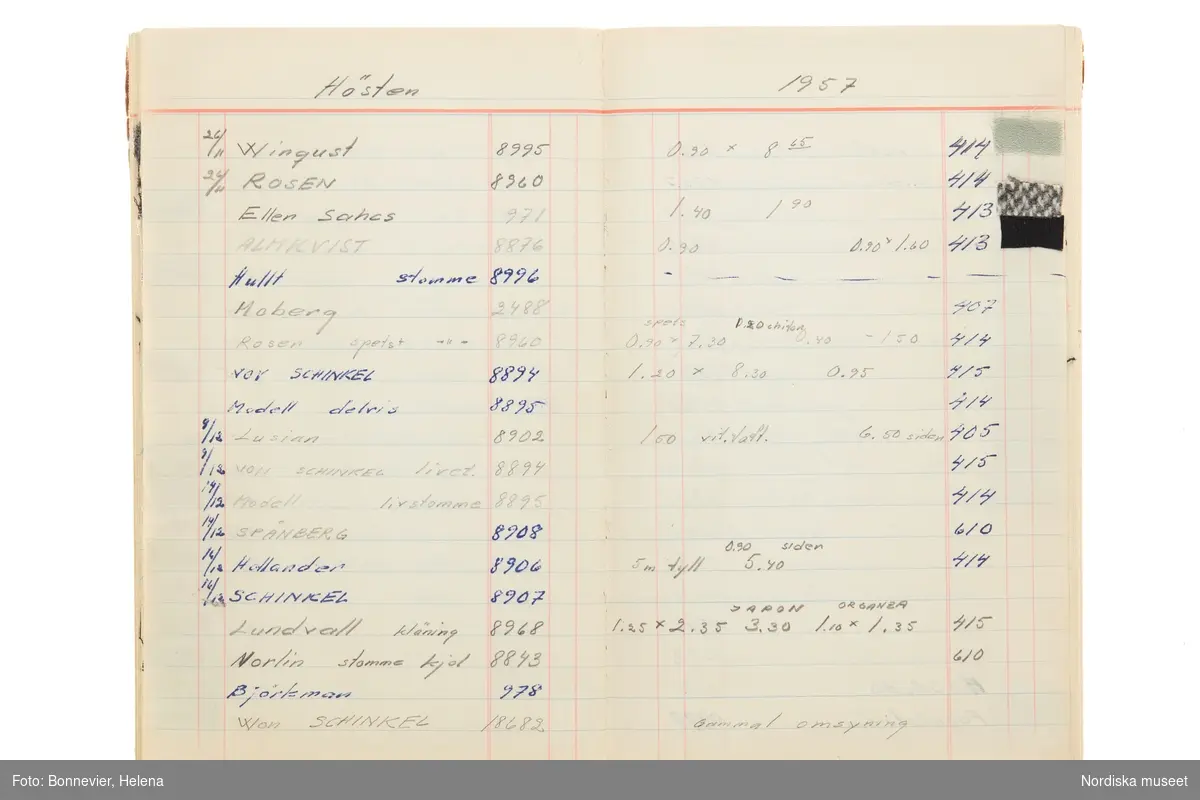 Hösten 1957
26/11 Winqust 8995 0.90 × 8 65 414
26/11 ROSEN 8960 414
Ellen Sahcs 971 1.40 1 90 413
ALMKVIST 8876 0.90 0.90 × 1.60 413
Hullt stomme 8996 - — — — - — —
Moberg 2488 407
spets 0.20 chifon
Rosen spetst -"- 8960 0.90 × 7.30 0.40 - 150 414
vov SCHINKEL 8894 1.20 × 8.30 0.95 415
Modell delvis 8895 414
9/12 Lusian 8902 150 vit.taft. 6.50 siden 405
9/12 von SCHINKEL livet. 8894 415
14/12 Modell livstomme 8895 414
14/12 SPÅNBERG 8908 610
0.90 siden
16/12 Hallander 8906 5m tyll 5.40 414
16/12 SCHINKEL 8907
JAPON ORGANZA
Lundvall kläning 8968 1.25 × 2.35 3.30 1.10 × 1.35 415
Norlin stomme kjol 8843 610
Björkman 978
Won SCHINKEL 18682 Gammal omsyning
Foto: Bonnevier, Helena Nordiska museet